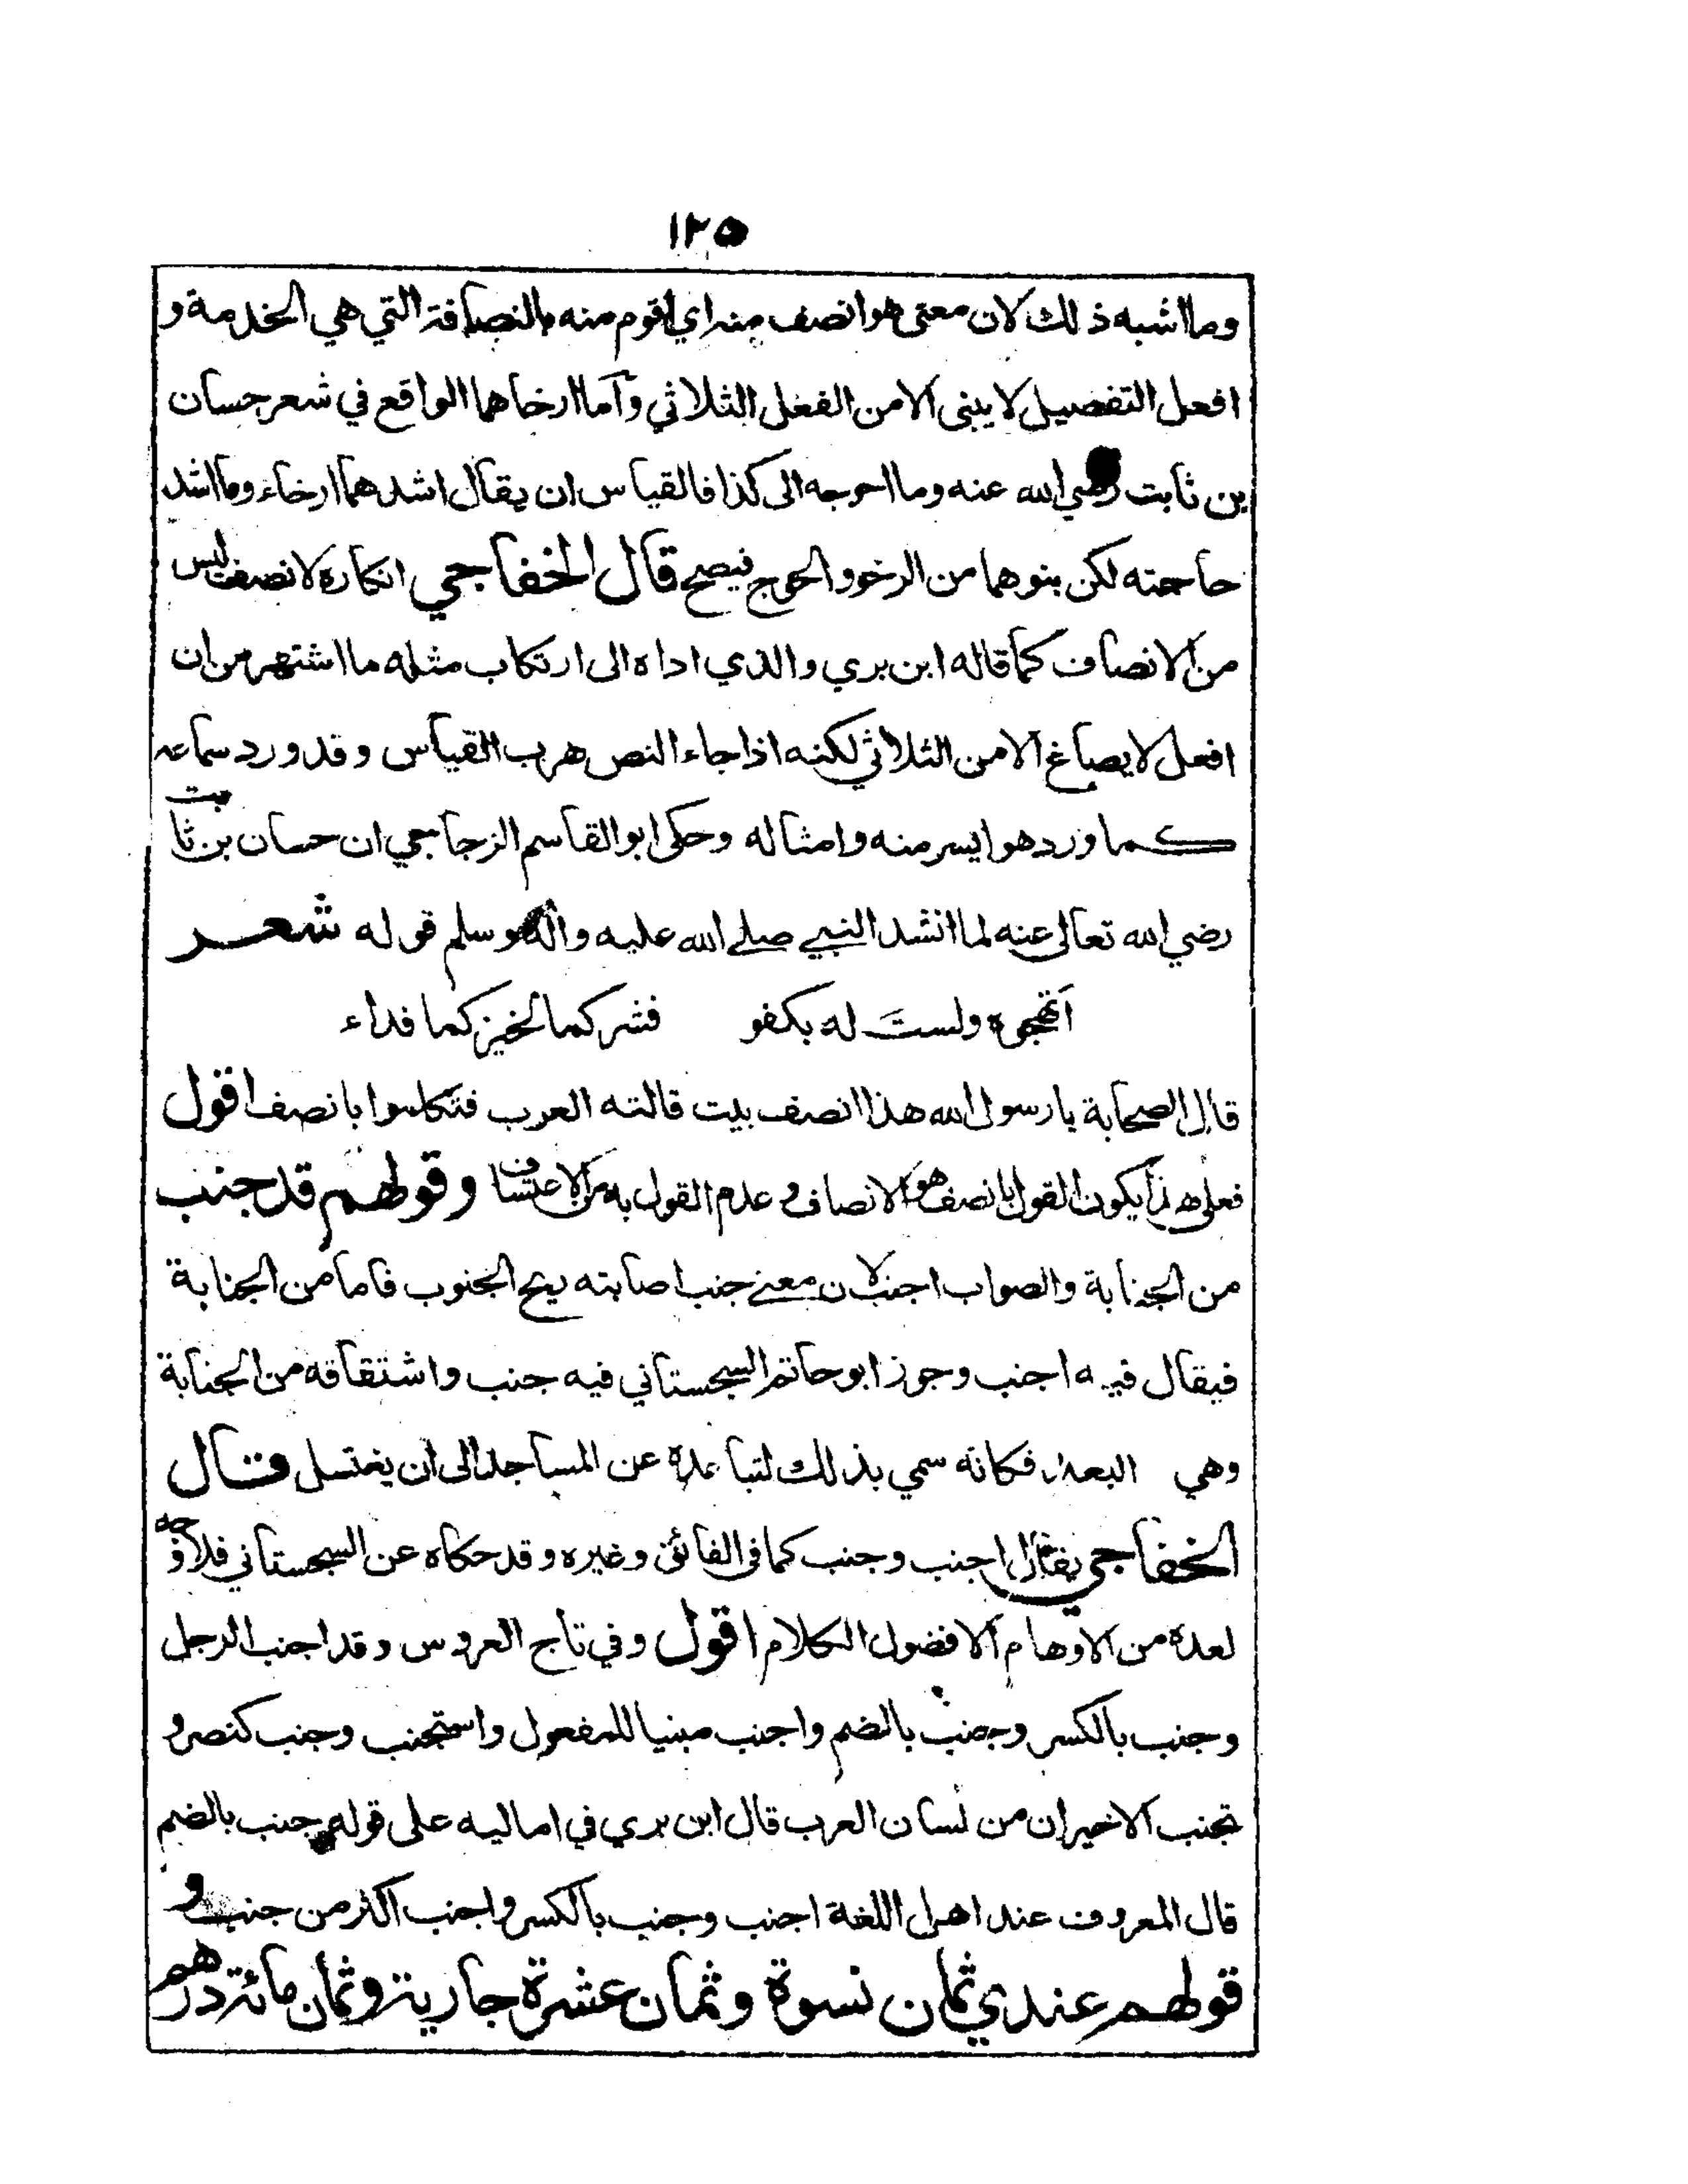 ١٢٥
وما اشبه ذلك لان معنى هو انصف منه اي اقوم منه بالنصافة التي هي الخدمة و
افعل التفضيل لا يبنى الا من الفعل الثلاثي وأما ارخاهما الواقع في شعر حسان
بن ثابت رضي الله عنه وما احوجه الى كذا فالقياس ان يقال اشدهما ارخاء وما اشد
حاجته لكن بنوهما من الرخو والحوج فيصح قال الخفاجي انكاره لا نصف ليس
من الانصاف كما قاله ابن بري والذي اداه الى ارتكاب مثله ما اشتهر من ان
افعل لا يصاغ الا من الثلاثي لكنه اذا جاء النص هرب القياس وقد ورد سماعه
كما ورد هو ايسر منه وامثاله وحكى ابو القاسم الزجاجي ان حسان بن ثابت
رضي الله تعالى عنه لما انشد النبي صلے الله عليه واله وسلم قوله شعر
أتهجوه ولستَ له بكفو فشركما لخيركما فداء
قال الصحابة يا رسول الله هذا انصف بيت قالته العرب فتكلموا بانصف اقول
فعلى هذا يكون القول بانصف هو الانصاف و عدم القول به من الاعتساف وقولهم قد جنب
من الجنابة والصواب اجنب لان معنے جنب اصابته ريح الجنوب فاما من الجنابة
فيقال فيه اجنب وجوز ابو حاتم السجستاني فيه جنب واشتقاقه من الجنابة
وهي البعد فكانه سمي بذلك لتباعده عن المساجد الى ان يغتسل قال
الخفاجي يقال اجنب وجنب كما فى الفائق وغيره وقد حكاه عن السجستاني فلا وجه
لعده من الاوهام الا فضول الكلام اقول وفي تاج العروس وقد اجنب الرجل
وجنب بالكسر وجنب بالضم واجنب مبنيا للمفعول واستجنب وجنب كنصر و
تجنب الاخيران من لسان العرب قال ابن بري في اماليه على قوله جنب بالضم
قال المعروف عند اهل اللغة اجنب وجنب بالكسر واجنب اكثر من جنب و
قولهم عندي ثمان نسوة وثمان عشرة جارية وثمان مائة درهم